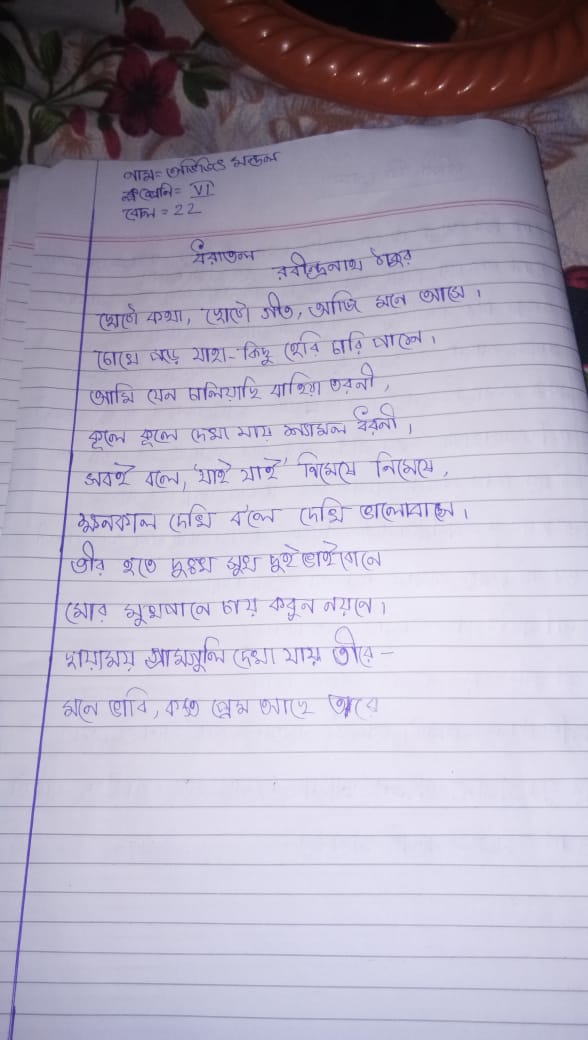 নাম= অভিজিৎ মন্ডল
শ্রেনি= VI
রোল = 22
ধরাতল
রবীন্দ্রনাথ ঠাকুর
ছোটো কথা, ছোটো গীত, আজি মনে আসে।
চোখে পড়ে যাহা-কিছু হেরি চারি পাশে।
আমি যেন চলিয়াছি বাহিয়া তরনী,
কূলে কূলে দেখা যায় শ্যামল ধরনী।
সবই বলে, 'যাই যাই' নিমেষে নিমেষে,
ক্ষনকাল দেখি ব'লে দেখি ভালোবেসে।
তীর হতে দুঃখ সুখ দুই ভাইবোনে
মোর মুখপানে চায় করুন নয়নে।
ছায়াময় গ্রামগুলি দেখা যায় তীরে-
মনে ভাবি, কত প্রেম আছে তারে